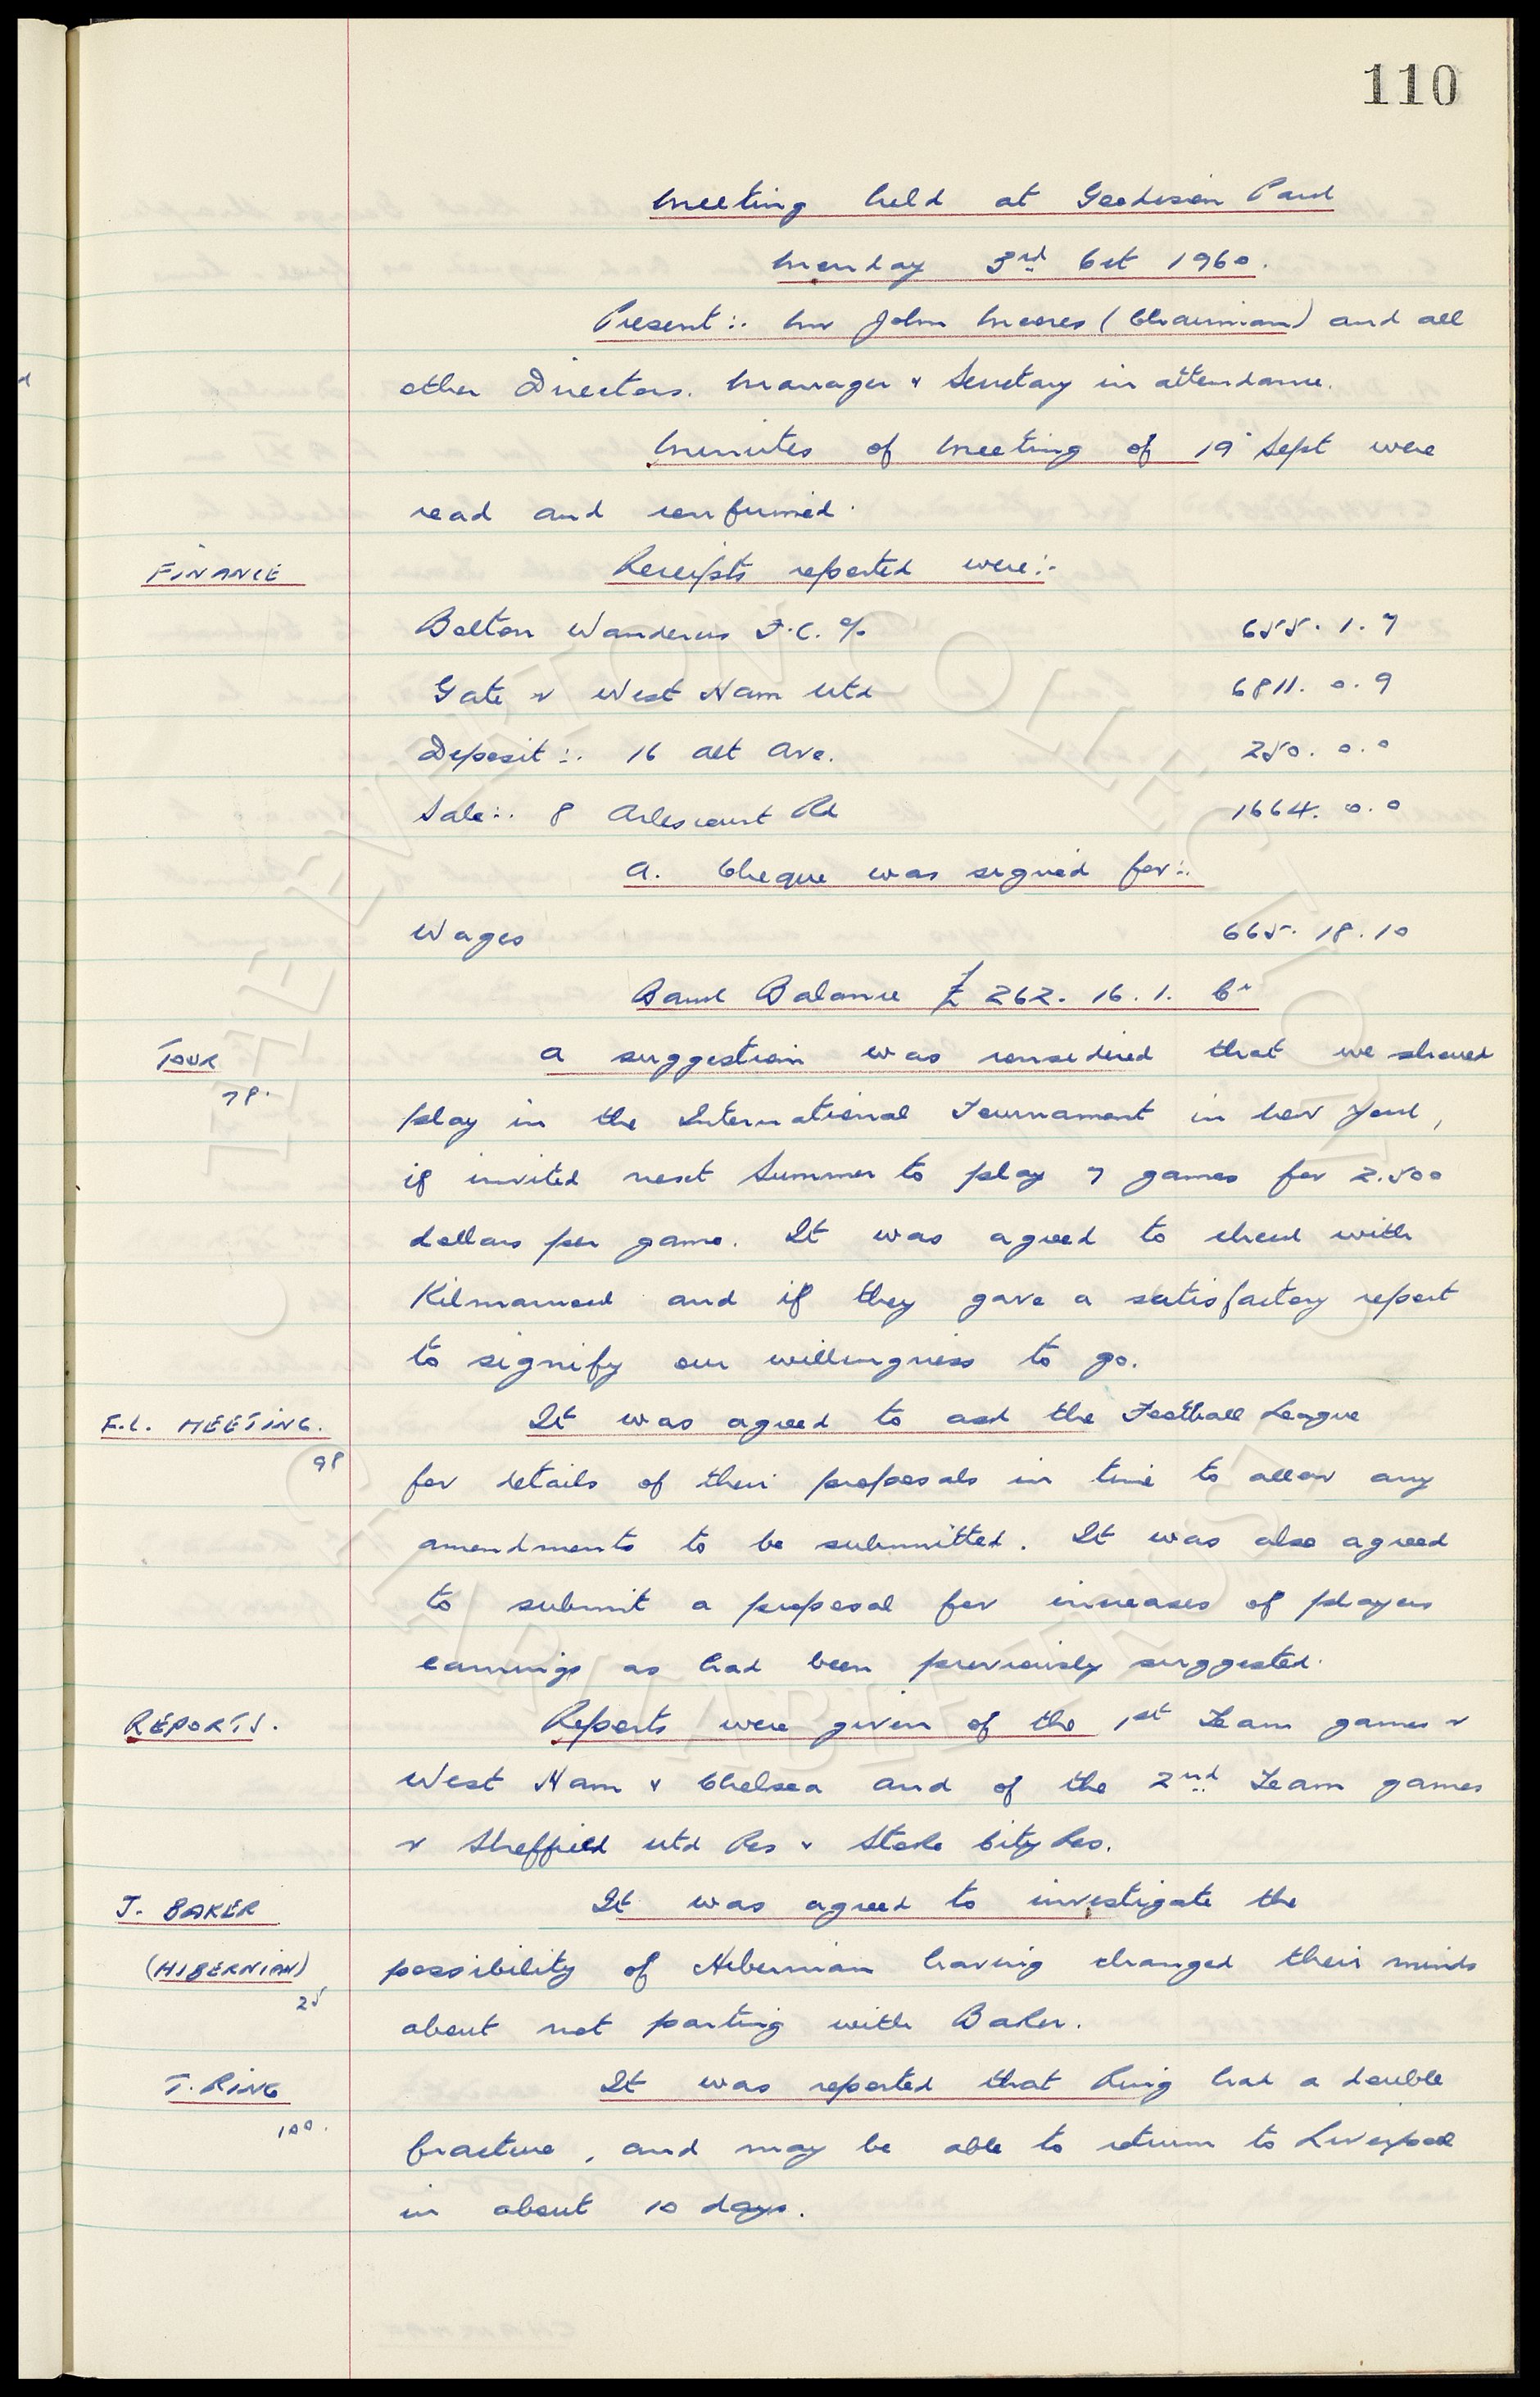 110
Meeting held at Goodison Park
Monday 3rd Oct 1960.
Present:- Mr John Moores (Chairman) and all
other Directors. Manager & Secretary in attendance.
Minutes of Meeting of 19 Sept were
read and confirmed.
FINANCE
Receipts reported were:-
Bolton Wanderers F.C. % 655. 1. 7
Gate v West Ham Utd 6811. 0. 9
Deposit:- 16 Alt Ave. 250. 0. 0
Sale:- 8 Arlescourt Rd 1664. 0. 0
A. Cheque was signed for:-
Wages 665. 18. 10
Bank Balance £ 262. 16. 1. Cr
TOUR
78.
A suggestion was considered that we should
play in the International Tournament in New York,
if invited next Summer to play 7 games for 2.500
dollars per game. It was agreed to check with
Kilmarnock and if they gave a satisfactory report
to signify our willingness to go.
F.L. MEETING.
98
It was agreed to ask the Football League
for details of their proposals in time to allow any
amendments to be submitted. It was also agreed
to submit a proposal for increases of players
earnings as had been previously suggested.
REPORTS.
Reports were given of the 1st Team games v
West Ham & Chelsea and of the 2nd Team games
v Sheffield Utd Res & Stoke City Res.
J. BAKER
(HIBERNIAN)
25
It was agreed to investigate the
possibility of Hibernian having changed their minds
about not parting with Baker.
T. RING
100.
It was reported that Ring had a double
fracture, and may be able to return to Liverpool
in about 10 days.